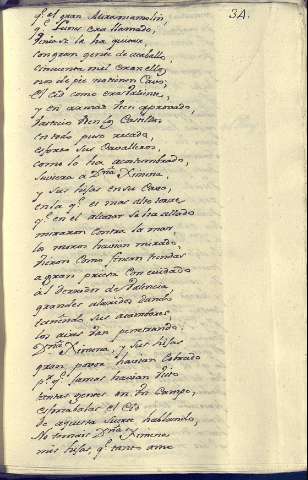 34.
q.e el gran Miramamolin,
q.e Junes era llamado,
con gran gente de acaballo,
cincuenta mil eran ellos
los de pie no tienen cavo,
El Cid como era valiente,
y en armas bien aprovado,
bastecio bien los Castillos
en todo puso recado,
esforzo sus Cavalleros,
como lo ha acostumbrado,
subiera a D.ña Ximena,
y sus hijas en su cavo,
en la q.e es mas alta torre
q.e en el alcazar se ha allado
miraron contra la mar,
los moros havian mirado,
vieron como fincan tiendas
a gran priesa con cuidado
al derredor de Valencia,
grandes alaridos dando
taniendo sus atambores,
los aires van penetrando.
D.ña Ximena, y sus hijas
gran pavor havian cobrado
p.r q.e jamas havian visto
tantas gentes en un Campo,
esforzabalas el Cid
de aquesta suerte hablando,
No temais D.ña Ximena
mis hijas, q.e tanto amo